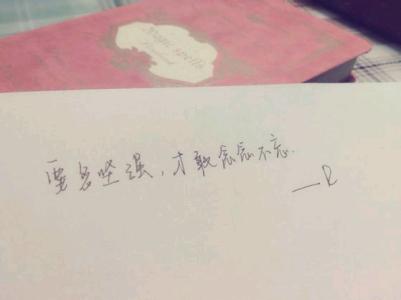 Magic spells
要多坚强,才敢念念不忘.
—R